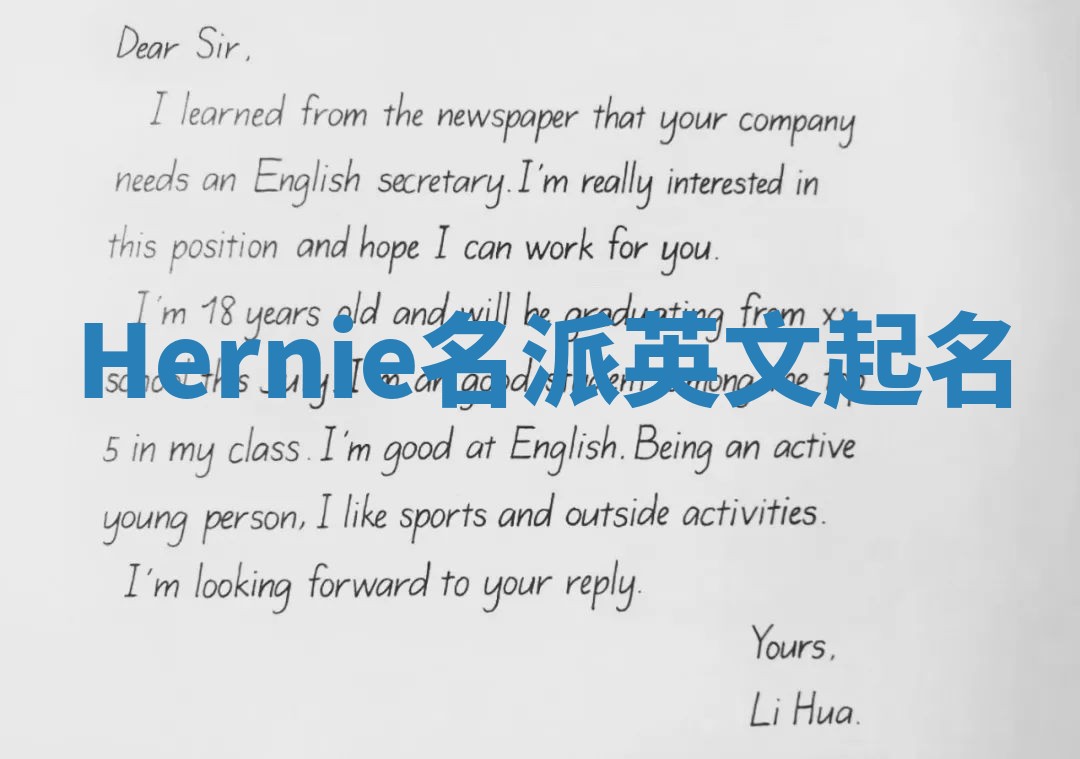 Dear Sir,
I learned from the newspaper that your company
needs an English secretary. I'm really interested in
this position and hope I can work for you.
I'm 18 years old and will be graduating from xx
Hernie名派英文起名
school this July. I'm a good student among the top
5 in my class. I'm good at English. Being an active
young person, I like sports and outside activities.
I'm looking forward to your reply.
Yours,
Li Hua.